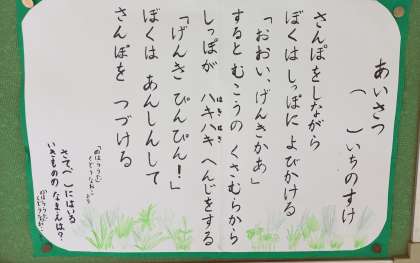 あいさつ
(　　)いちのすけ
さんぽをしながら
ぼくは しっぽに よびかける
「おおい、げんきかあ」
すると むこうの くさむらから
しっぽが ハキハキ へんじをする
「げんき ぴんぴん！」
ぼくは あんしんして
さんぽを つづける
さて( )にはいる
いきものの なまえは？